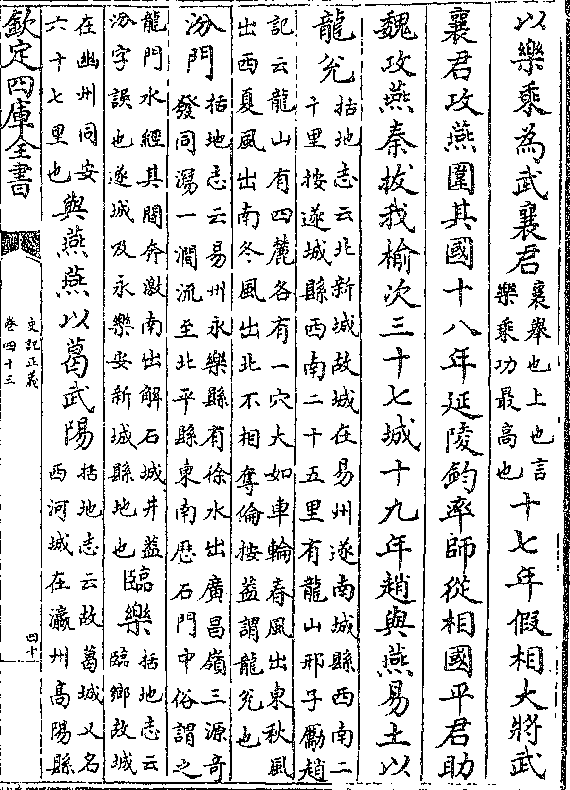 以樂乘為武襄君襄舉也上也言樂乘功最高也十七年假相大將武
襄君攻燕圍其國十八年延陵鈞率師從相國平君助
魏攻燕秦拔我榆次三十七城十九年趙與燕易土以
龍兌括地志云北新城故城在易州遂南城縣西南二十里按遂城縣西南二十五里有龍山邢子勵趙
記云龍山有四麓各有一穴大如車輪春風出東秋風出西夏風出南冬風出北不相奪倫按蓋謂龍兌也
汾門括地志云易州永樂縣有徐水出廣昌嶺三源奇發同瀉一澗流至北平縣東南歷石門中俗謂之
龍門水經其間奔激南出觧石城井蓋汾字誤也遂城及永樂安新城縣地也臨樂括地志云臨鄉故城
在幽州同安六十七里也與燕燕以葛武陽括地志云故葛城乂名西河城在瀛州高陽縣
欽定四庫全書
史記正義
卷四十三
四十